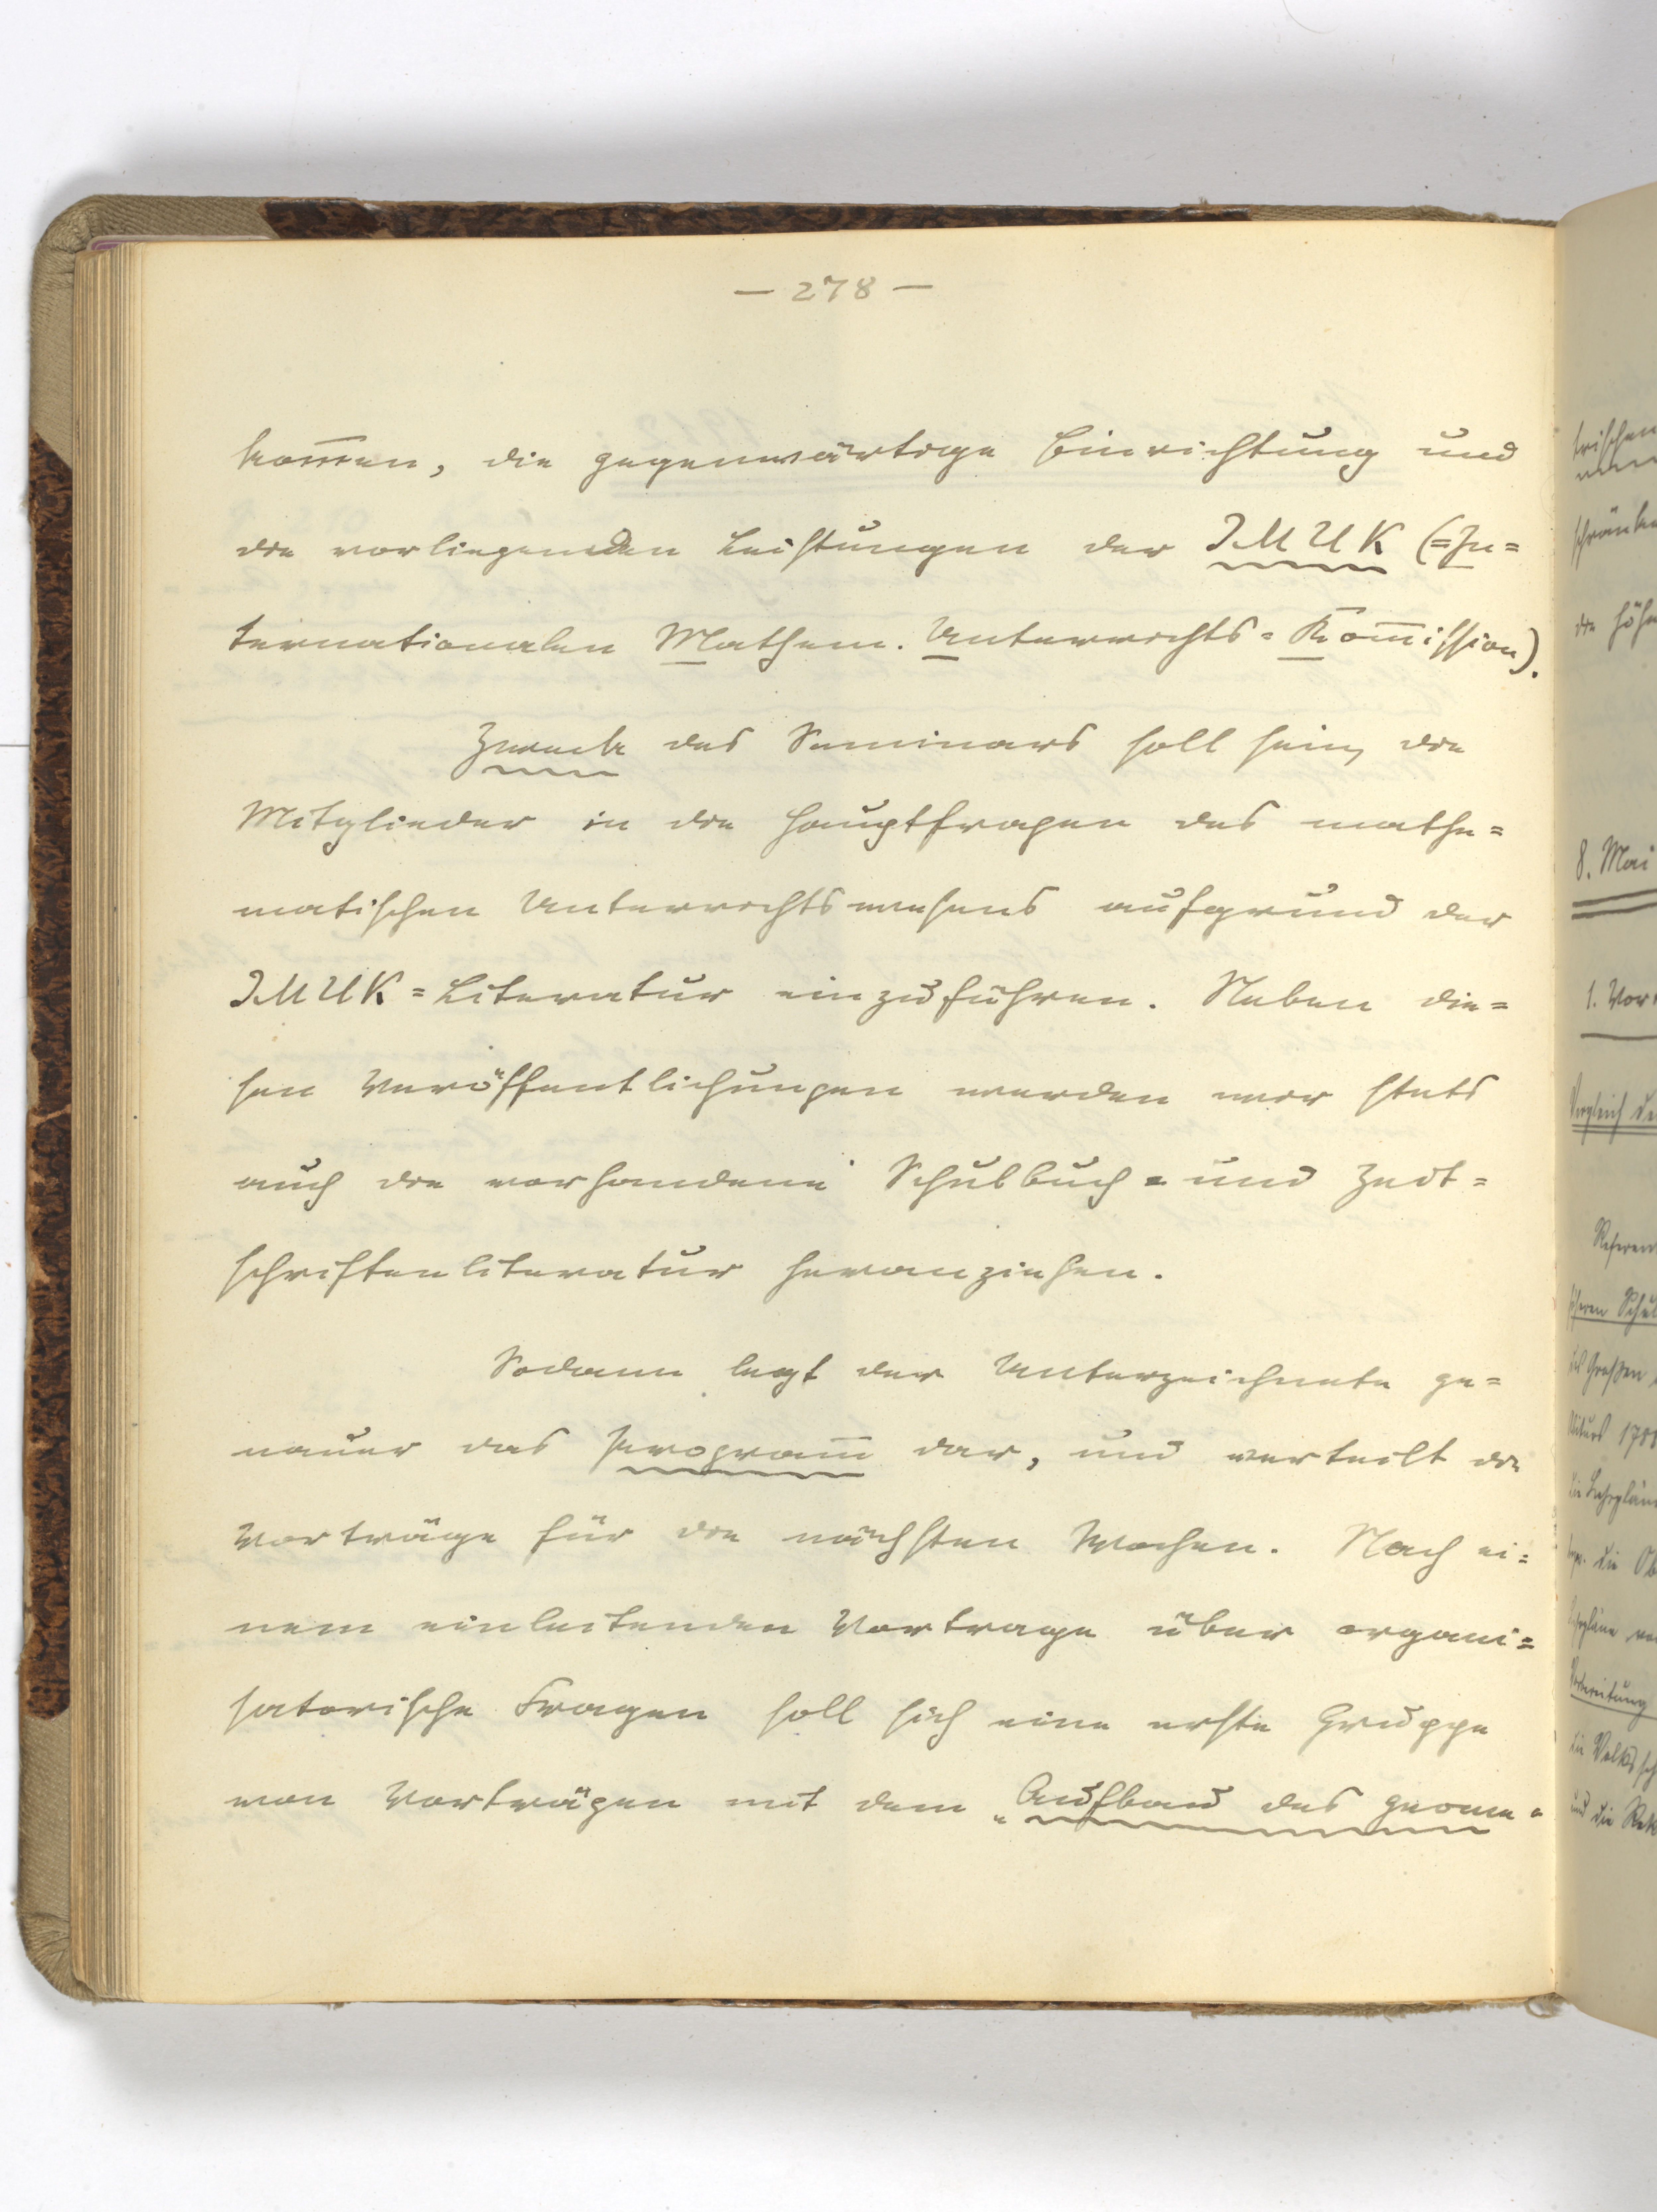 — 278 —
kom̅en, die gegenwärtige Einrichtung und
die vorliegenden Leistungen der IMUK (=In=
ternationalen Mathem. Unterrichts=Kom̅ission).
Zweck des Seminars soll sein, die
Mitglieder in die Hauptfragen des mathe=
matischen Unterrichtswesens aufgrund der
IMUK=Literatur einzuführen. Neben die=
sen Veröffentlichungen werden wir stets
auch die vorhandene Schulbuch= und Zeit=
schriftenliteratur heranziehen.
Sodann legt der Unterzeichnete ge=
nauer das Program̅ dar, und verteilt die
Vorträge für die nächsten Wochen. Nach ei=
nem einleitenden Vortrage über organi=
satorische Fragen soll sich eine erste Gruppe
von Vorträgen mit dem „Aufbau des geome=
trischen
schränke
die höhe
8. Mai
1. Vor
Vergleich de
Referen
höheren Schul
die Lehrplän
die Ob
Vorbereitung
die Volkssch
und die